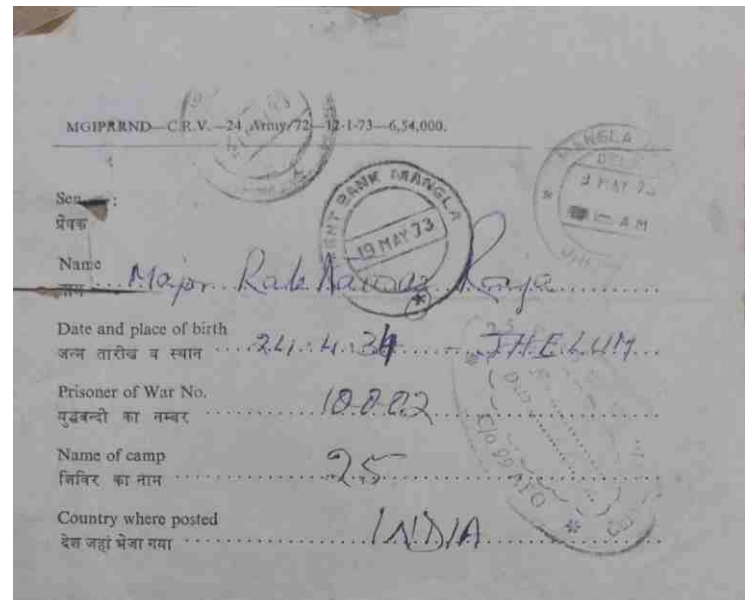 MGIPRRND—C.R.V.—24 Army/72—12-1-73—6,54,000.
MANGLA
3 MAY 73
A M
BANK MANGLA
19 MAY 73
प्रेषक
Name Major Rab Nawaz Raja
नाम
Date and place of birth
जन्म तारीख व स्थान 24.4.34 JHELUM
Prisoner of War No.
युद्धबन्दी का नम्बर 10002
Name of camp
शिविर का नाम 25
C/o 99 APO
Country where posted
देश जहां भेजा गया INDIA